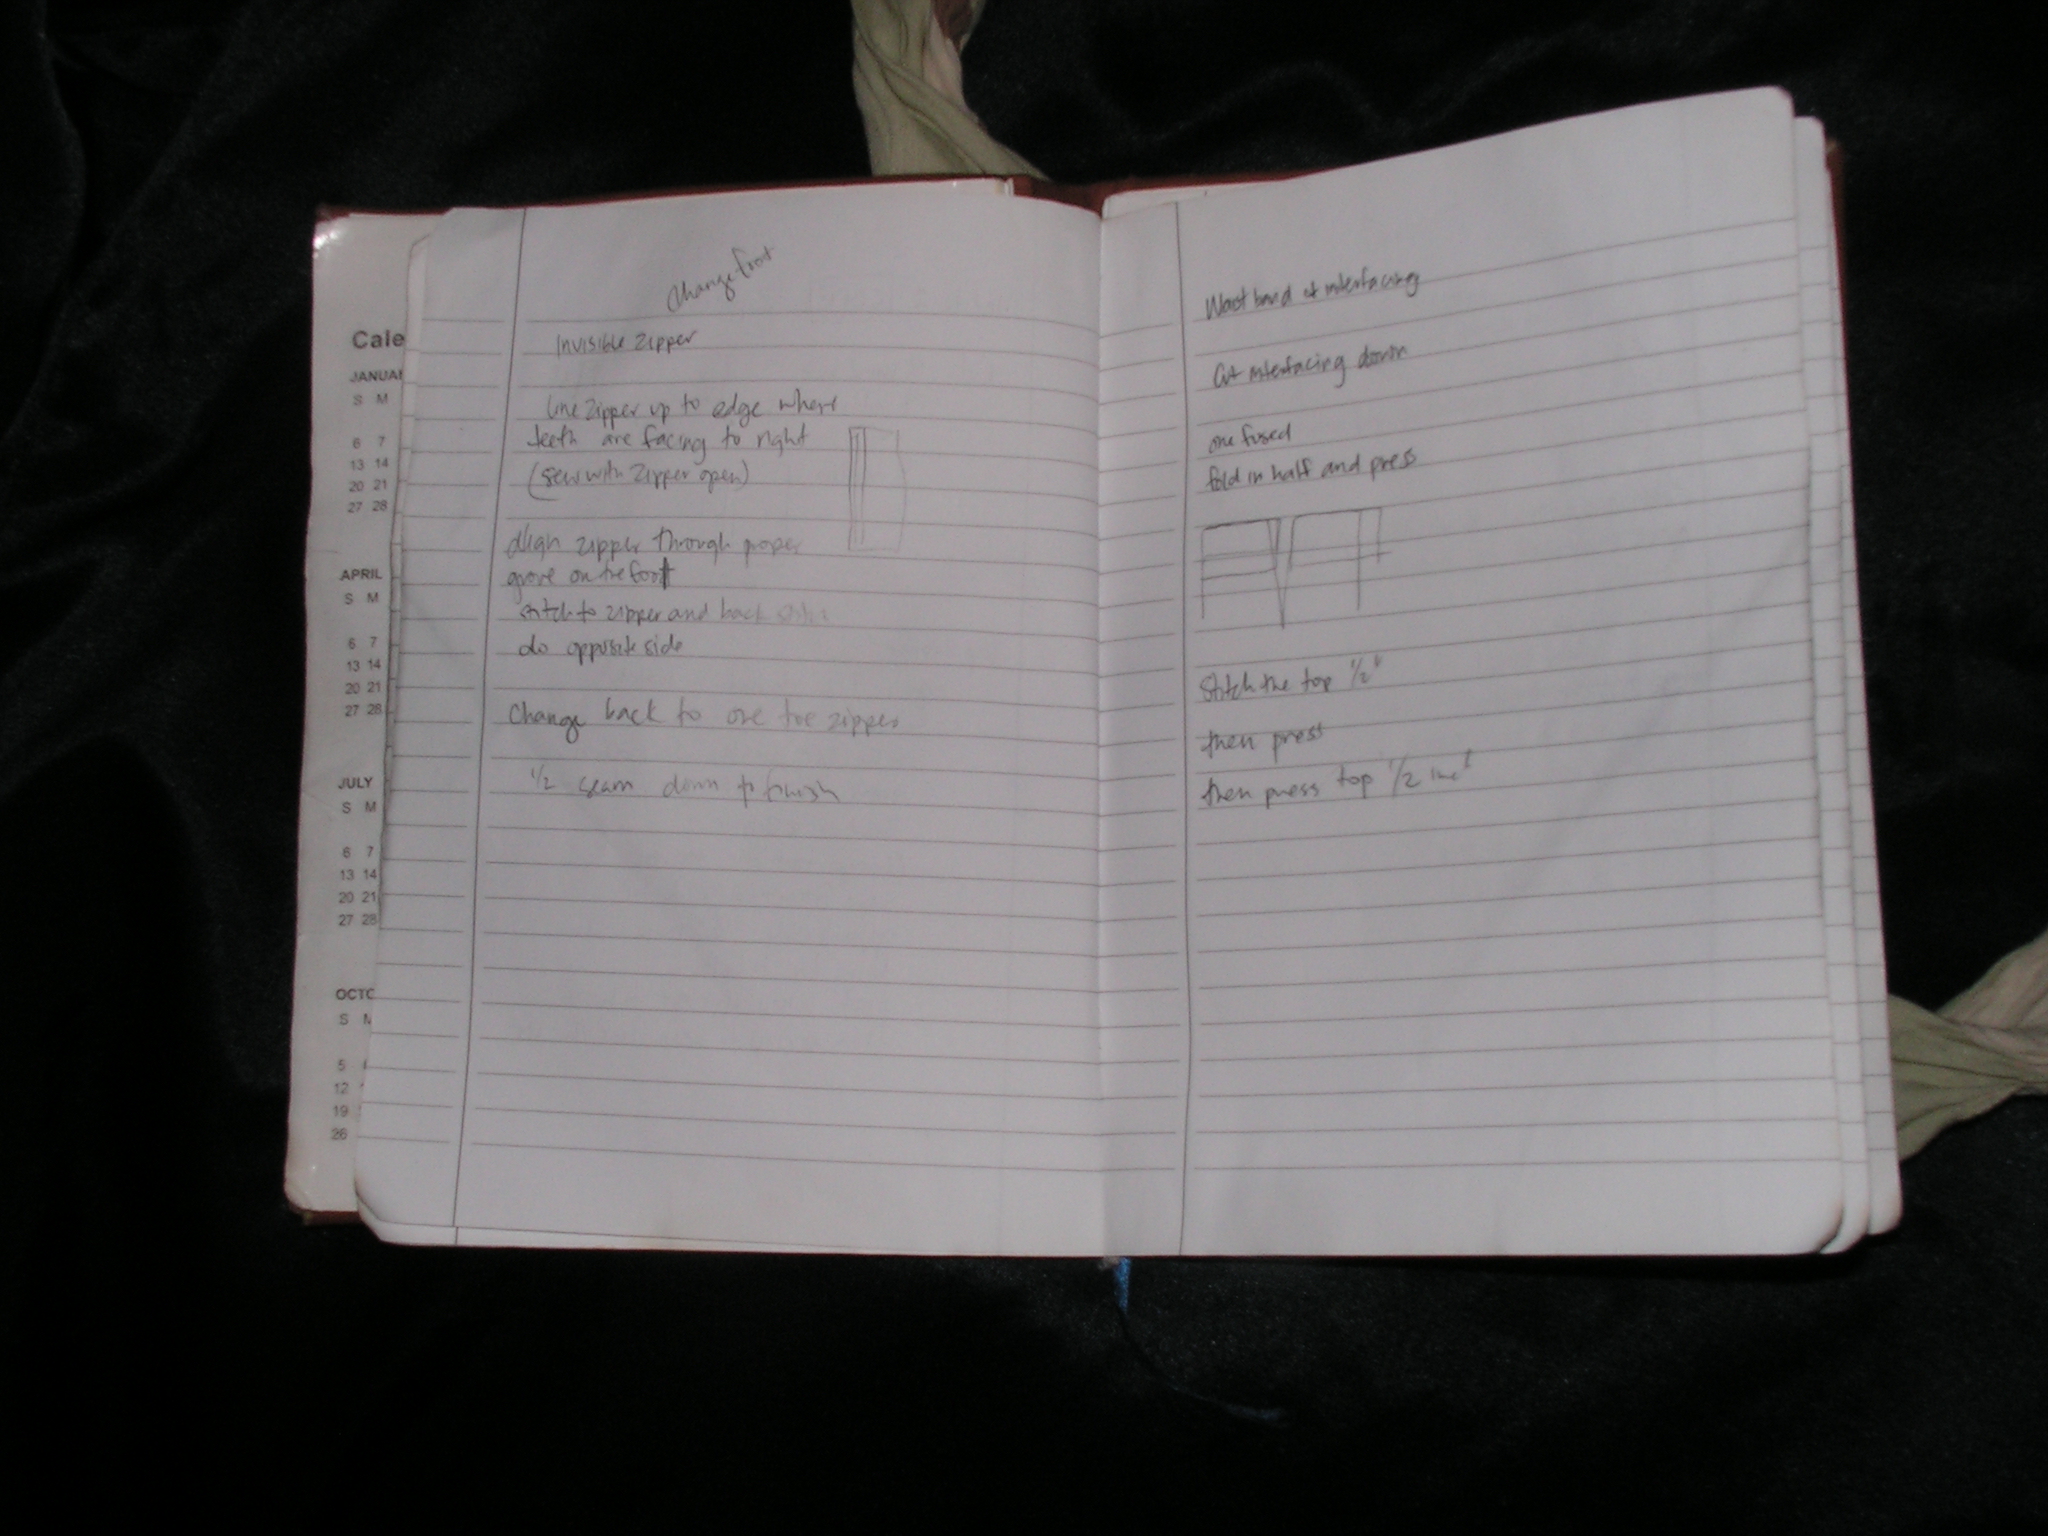 Change foot
Invisible Zipper
line zipper up to edge where
teeth are facing to right
(sew with zipper open)
align zipper through proper
grove on the foot
stitch to zipper and back stitch
do opposite side
Change back to one toe zipper
1/2 seam down to finish
Waist band & interfacing
Cut interfacing down
one fused
fold in half and press
Stitch the top 1/2"
then press
then press top 1/2 inch
Cale
JANUAR
S M
6 7
13 14
20 21
27 28
APRIL
S M
6 7
13 14
20 21
27 28
JULY
S M
6 7
13 14
20 21
27 28
OCTO
S M
5
12
19
26